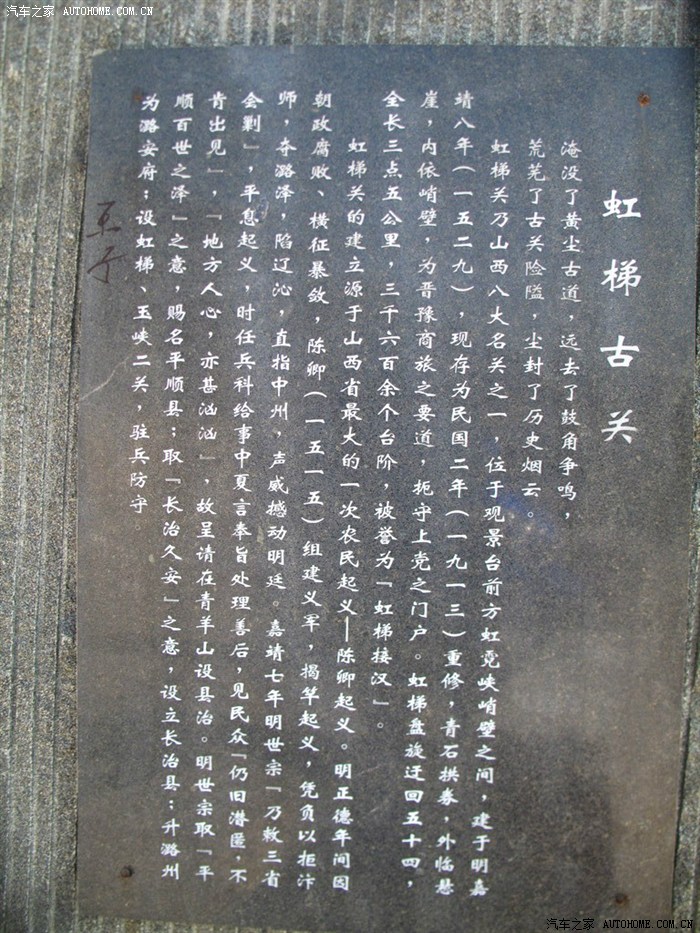 汽车之家 AUTOHOME.COM.CN
虹梯古关
淹没了黄尘古道，远去了鼓角争鸣，
荒芜了古关险隘，尘封了历史烟云。
虹梯关乃山西八大名关之一，位于观景台前方虹霓峡峭壁之间，建于明嘉
靖八年（一五二九），现存为民国二年（一九一三）重修，青石拱券，外临悬
崖，内依峭壁，为晋豫商旅之要道，扼守上党之门户。虹梯盘旋迂回五十四，
全长三点五公里，三千六百余个台阶，被誉为『虹梯接汉』。
虹梯关的建立源于山西省最大的一次农民起义—陈卿起义。明正德年间因
朝政腐败、横征暴敛，陈卿（一五一五）组建义军，揭竿起义，凭负以拒汴
师，夺潞泽，陷辽沁，直指中州，声威撼动明廷。嘉靖七年明世宗『乃敕三省
会剿』，平息起义，时任兵科给事中夏言奉旨处理善后，见民众『仍旧潜匿，不
肯出见』，『地方人心，亦甚汹汹』，故呈请在青羊山设县治。明世宗取『平
顺百世之泽』之意，赐名平顺县；取『长治久安』之意，设立长治县；升潞州
为潞安府；设虹梯、玉峡二关，驻兵防守。
汽车之家 AUTOHOME.COM.CN